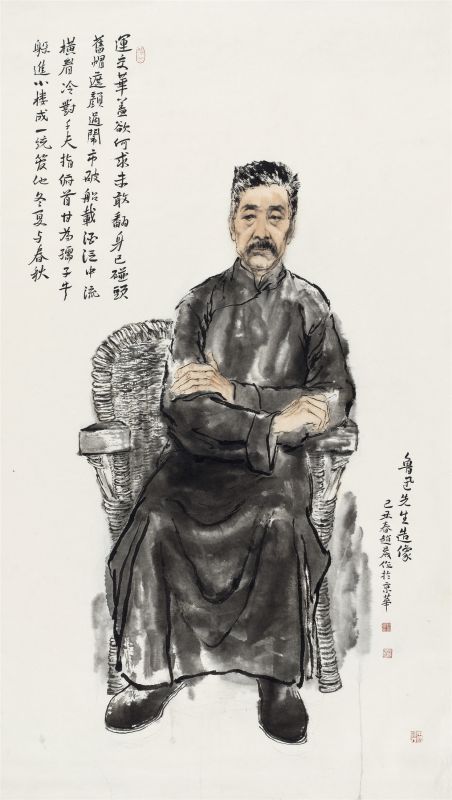 運交華蓋欲何求未敢翻身已碰頭
舊帽遮顏過鬧市破船載酒泛中流
橫眉冷對千夫指俯首甘為孺子牛
躲進小樓成一統管他冬夏与春秋
魯迅先生造像
己丑春趙晨作於京華